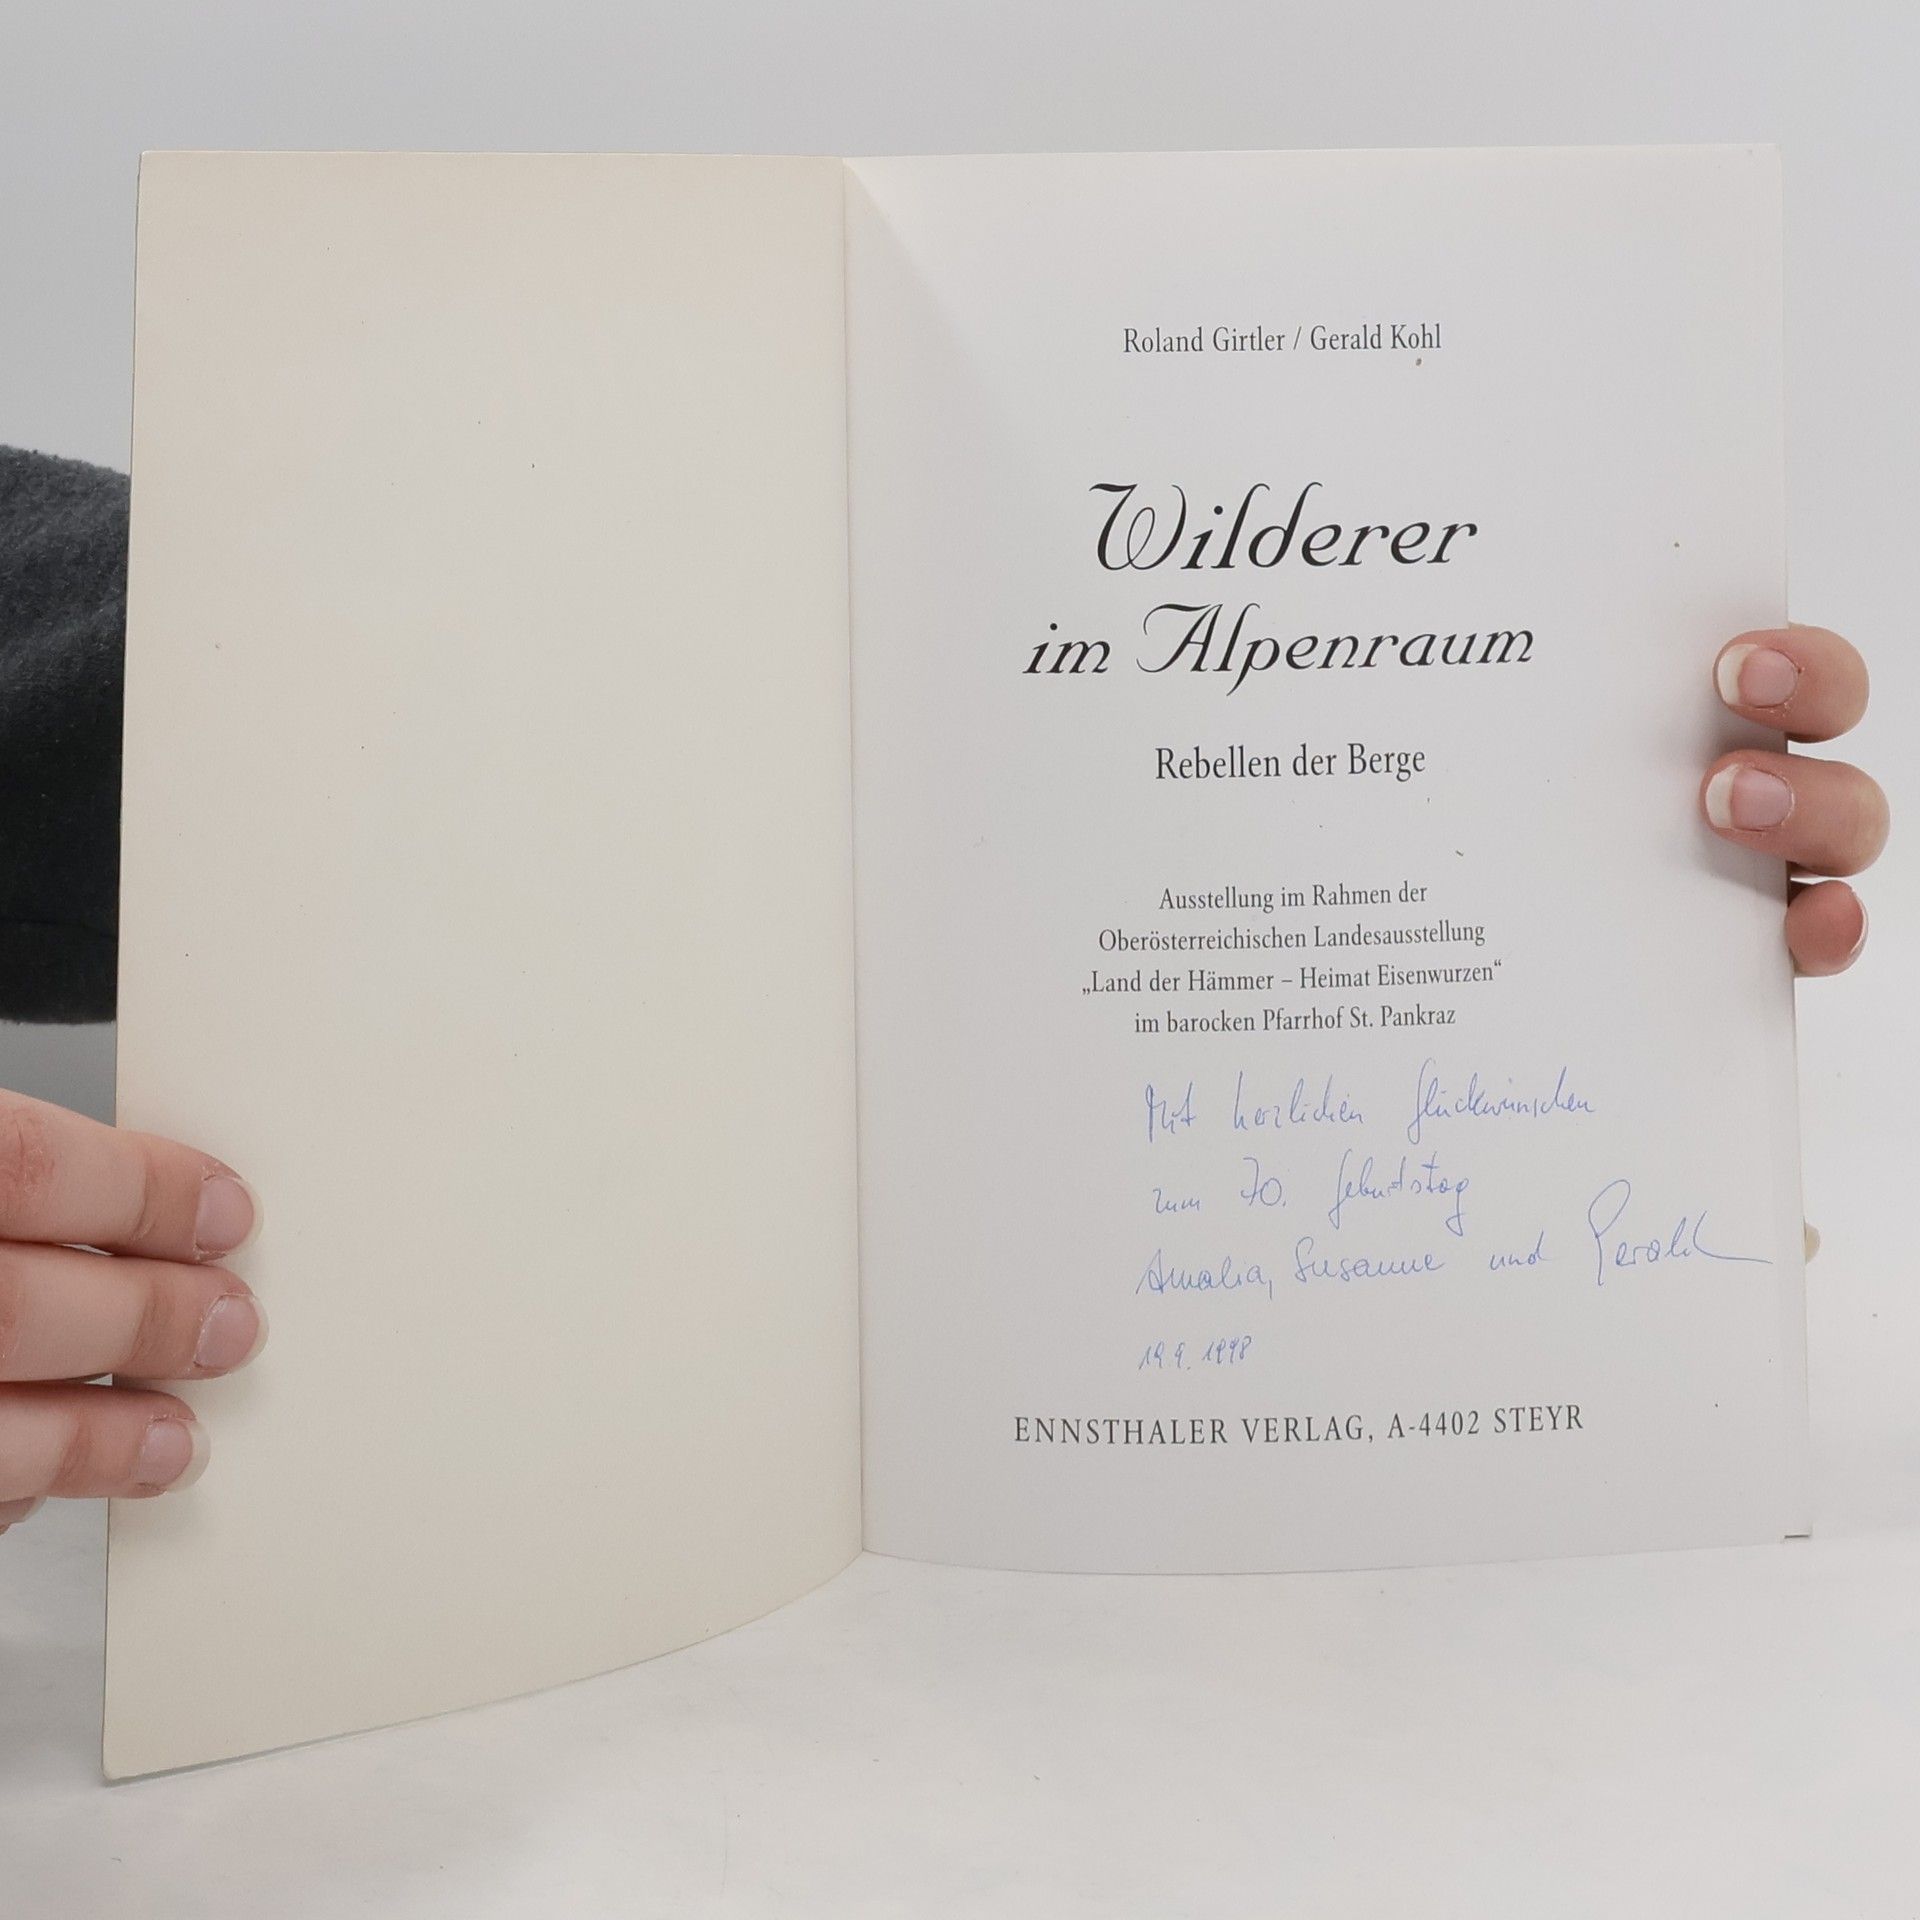 Roland Girtler / Gerald Kohl
Wilderer
im Alpenraum
Rebellen der Berge
Ausstellung im Rahmen der
Oberösterreichischen Landesausstellung
„Land der Hämmer – Heimat Eisenwurzen“
im barocken Pfarrhof St. Pankraz
Mit herzlichen Glückwünschen
zum 70. Geburtstag
Amalia, Susanne und Gerald
19.9.1998
ENNSTHALER VERLAG, A-4402 STEYR